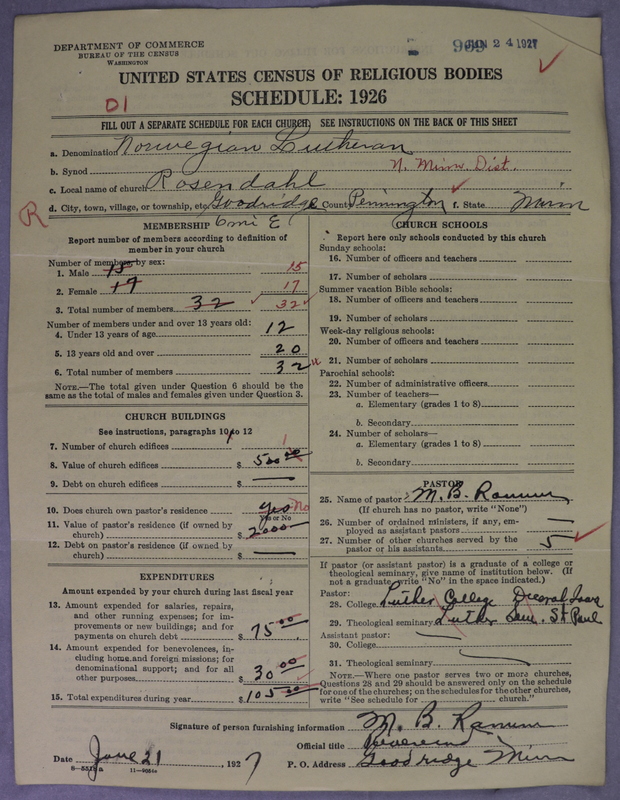 DEPARTMENT OF COMMERCE
BUREAU OF THE CENSUS
WASHINGTON
969 JUN 24 1927
UNITED STATES CENSUS OF RELIGIOUS BODIES
SCHEDULE: 1926
D1
FILL OUT A SEPARATE SCHEDULE FOR EACH CHURCH. SEE INSTRUCTIONS ON THE BACK OF THIS SHEET
a. Denomination Norwegian Lutheran
b. Synod N. Minn. Dist.
c. Local name of church Rosendahl
d. City, town, village, or township, etc. Goodridge County Pennington f. State Minn
R
6 mi E
MEMBERSHIP
Report number of members according to definition of member in your church
Number of members by sex:
1. Male 15 15
2. Female 17 17
3. Total number of members 32 32
Number of members under and over 13 years old:
4. Under 13 years of age 12
5. 13 years old and over 20
6. Total number of members 32
NOTE.—The total given under Question 6 should be the same as the total of males and females given under Question 3.
CHURCH BUILDINGS
See instructions, paragraphs 10 to 12
7. Number of church edifices 1
8. Value of church edifices $ 500 00
9. Debt on church edifices $ —
10. Does church own pastor's residence yes No
Yes or No
11. Value of pastor's residence (if owned by church) $ 2000
12. Debt on pastor's residence (if owned by church) $ —
EXPENDITURES
Amount expended by your church during last fiscal year
13. Amount expended for salaries, repairs, and other running expenses; for improvements or new buildings; and for payments on church debt $ 75 00
14. Amount expended for benevolences, including home and foreign missions; for denominational support; and for all other purposes $ 30 00
15. Total expenditures during year $ 105 00
CHURCH SCHOOLS
Report here only schools conducted by this church
Sunday schools:
16. Number of officers and teachers
17. Number of scholars
Summer vacation Bible schools:
18. Number of officers and teachers
19. Number of scholars
Week-day religious schools:
20. Number of officers and teachers
21. Number of scholars
Parochial schools:
22. Number of administrative officers
23. Number of teachers—
a. Elementary (grades 1 to 8)
b. Secondary
24. Number of scholars—
a. Elementary (grades 1 to 8)
b. Secondary
PASTOR
25. Name of pastor M. B.
(If church has no pastor, write "None")
26. Number of ordained ministers, if any, employed as assistant pastors —
27. Number of other churches served by the pastor or his assistants 5
If pastor (or assistant pastor) is a graduate of a college or theological seminary, give name of institution below. (If not a graduate write "No" in the space indicated.)
Pastor:
28. College Luther College Decorah Iowa
29. Theological seminary Luther Sem. St Paul
Assistant pastor:
30. College —
31. Theological seminary —
NOTE.—Where one pastor serves two or more churches, Questions 28 and 29 should be answered only on the schedule for one of the churches; on the schedules for the other churches, write "See schedule for church."
Signature of person furnishing information M. B.
Official title Reverend
Date June 21 1927 P. O. Address Goodridge Minn